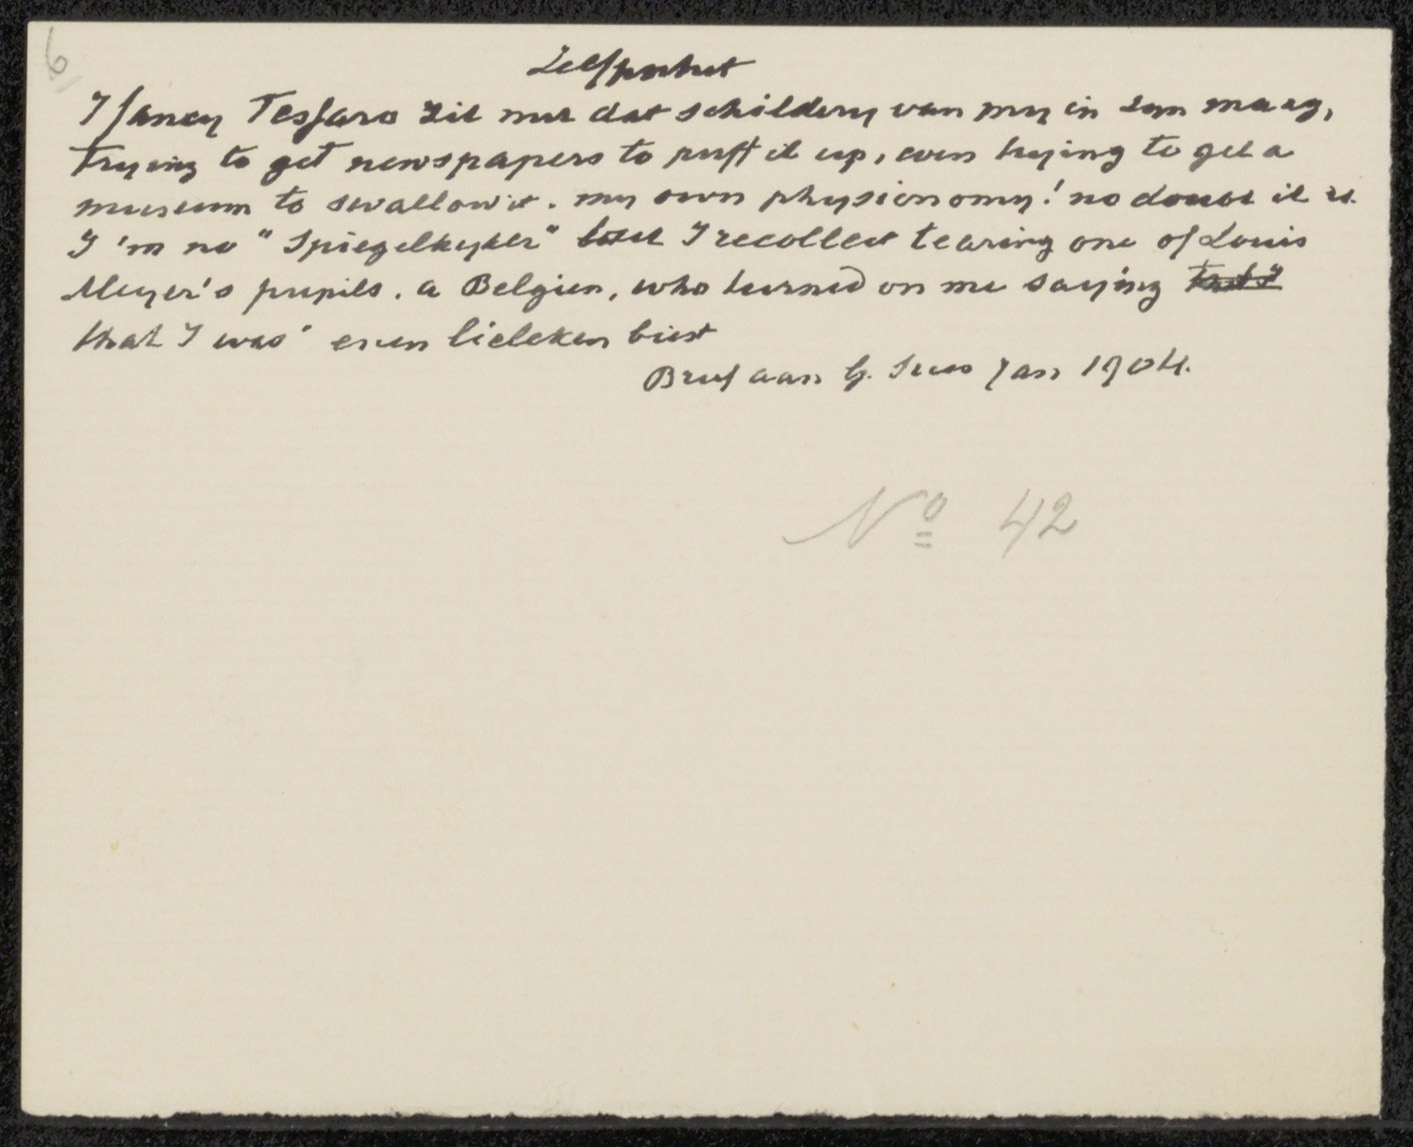 6
Zelfportret
I fancy Tesfaro zit met dat schildery van my in zyn maag,
trying to get newspapers to puff it up, even trying to get a
museum to swallow it. my own physionomy! no doubt it is.
I'm no "Spiegelkyker" but I recollect tearing one of Louis
Meyer's pupils. a Belgien, who turned on me saying that I
that I was' eenen lieleken biest
Brief aan G. Jan 1904.
No 42